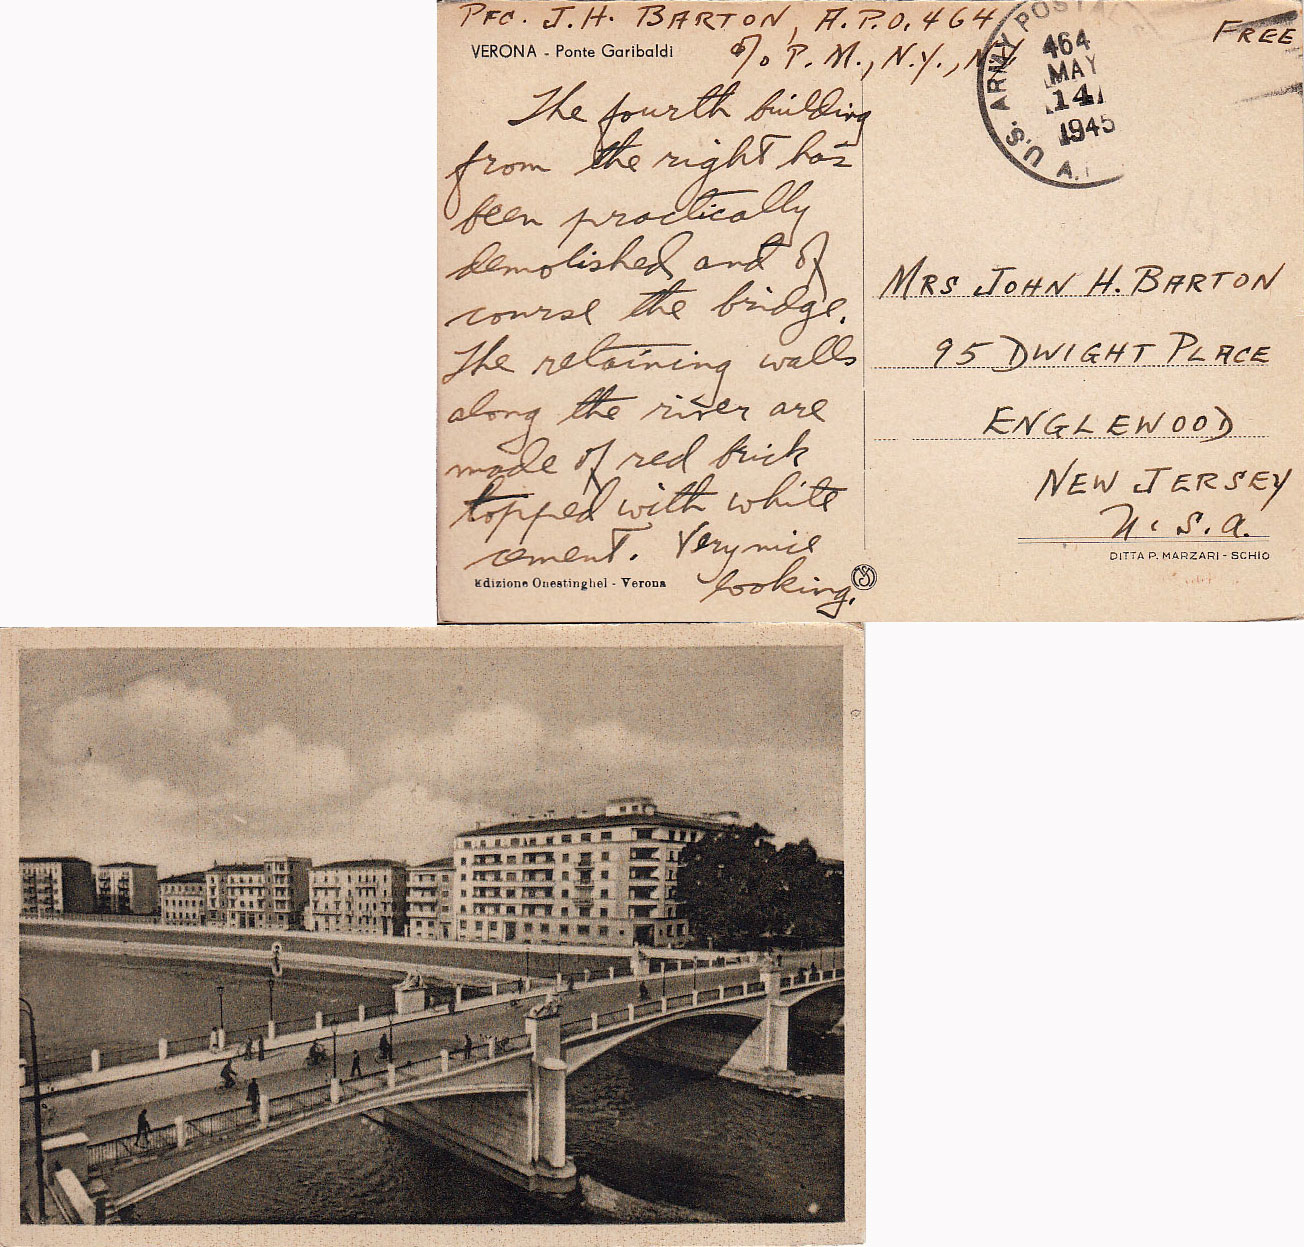 PFC. J. H. BARTON, A.P.O. 464
FREE
VERONA - Ponte Garibaldi
c/o P. M., N.Y., N.Y.
U.S. ARMY POSTAL
464
MAY
14
1945
A.P.
The fourth building
from the right has
been practically
demolished and of
course the bridge.
The retaining walls
along the river are
made of red brick
topped with white
cement. Very nice
looking.
MRS JOHN H. BARTON
95 DWIGHT PLACE
ENGLEWOOD
NEW JERSEY
U. S. A.
DITTA P. MARZARI - SCHIO
Edizione Onestinghel - Verona